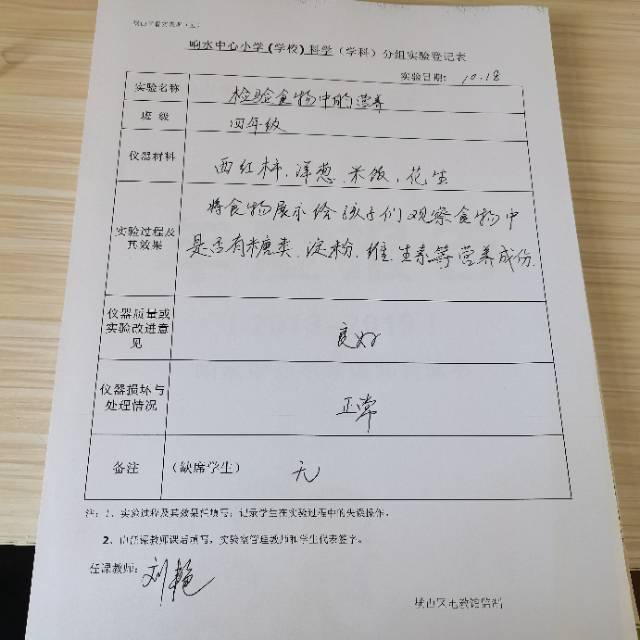 响水中心小学(学校)科学(学科)分组实验登记表
实验日期: 10.18
实验名称 检验食物中的营养
班 级 四年级
仪器材料 西红柿、洋葱、米饭、花生
将食物展示给孩子们观察食物中
实验过程及
其效果
是否有糖类、淀粉、维生素等营养成份.
仪器质量或
实验改进意
见
良好
仪器损坏与
处理情况
正常
备注 (缺席学生) 无
注: 1、实验过程及其效果栏填写: 记录学生在实验过程中的失误操作。
2、由任课教师课后填写, 实验室管理教师和学生代表签字。
任课教师: 刘艳